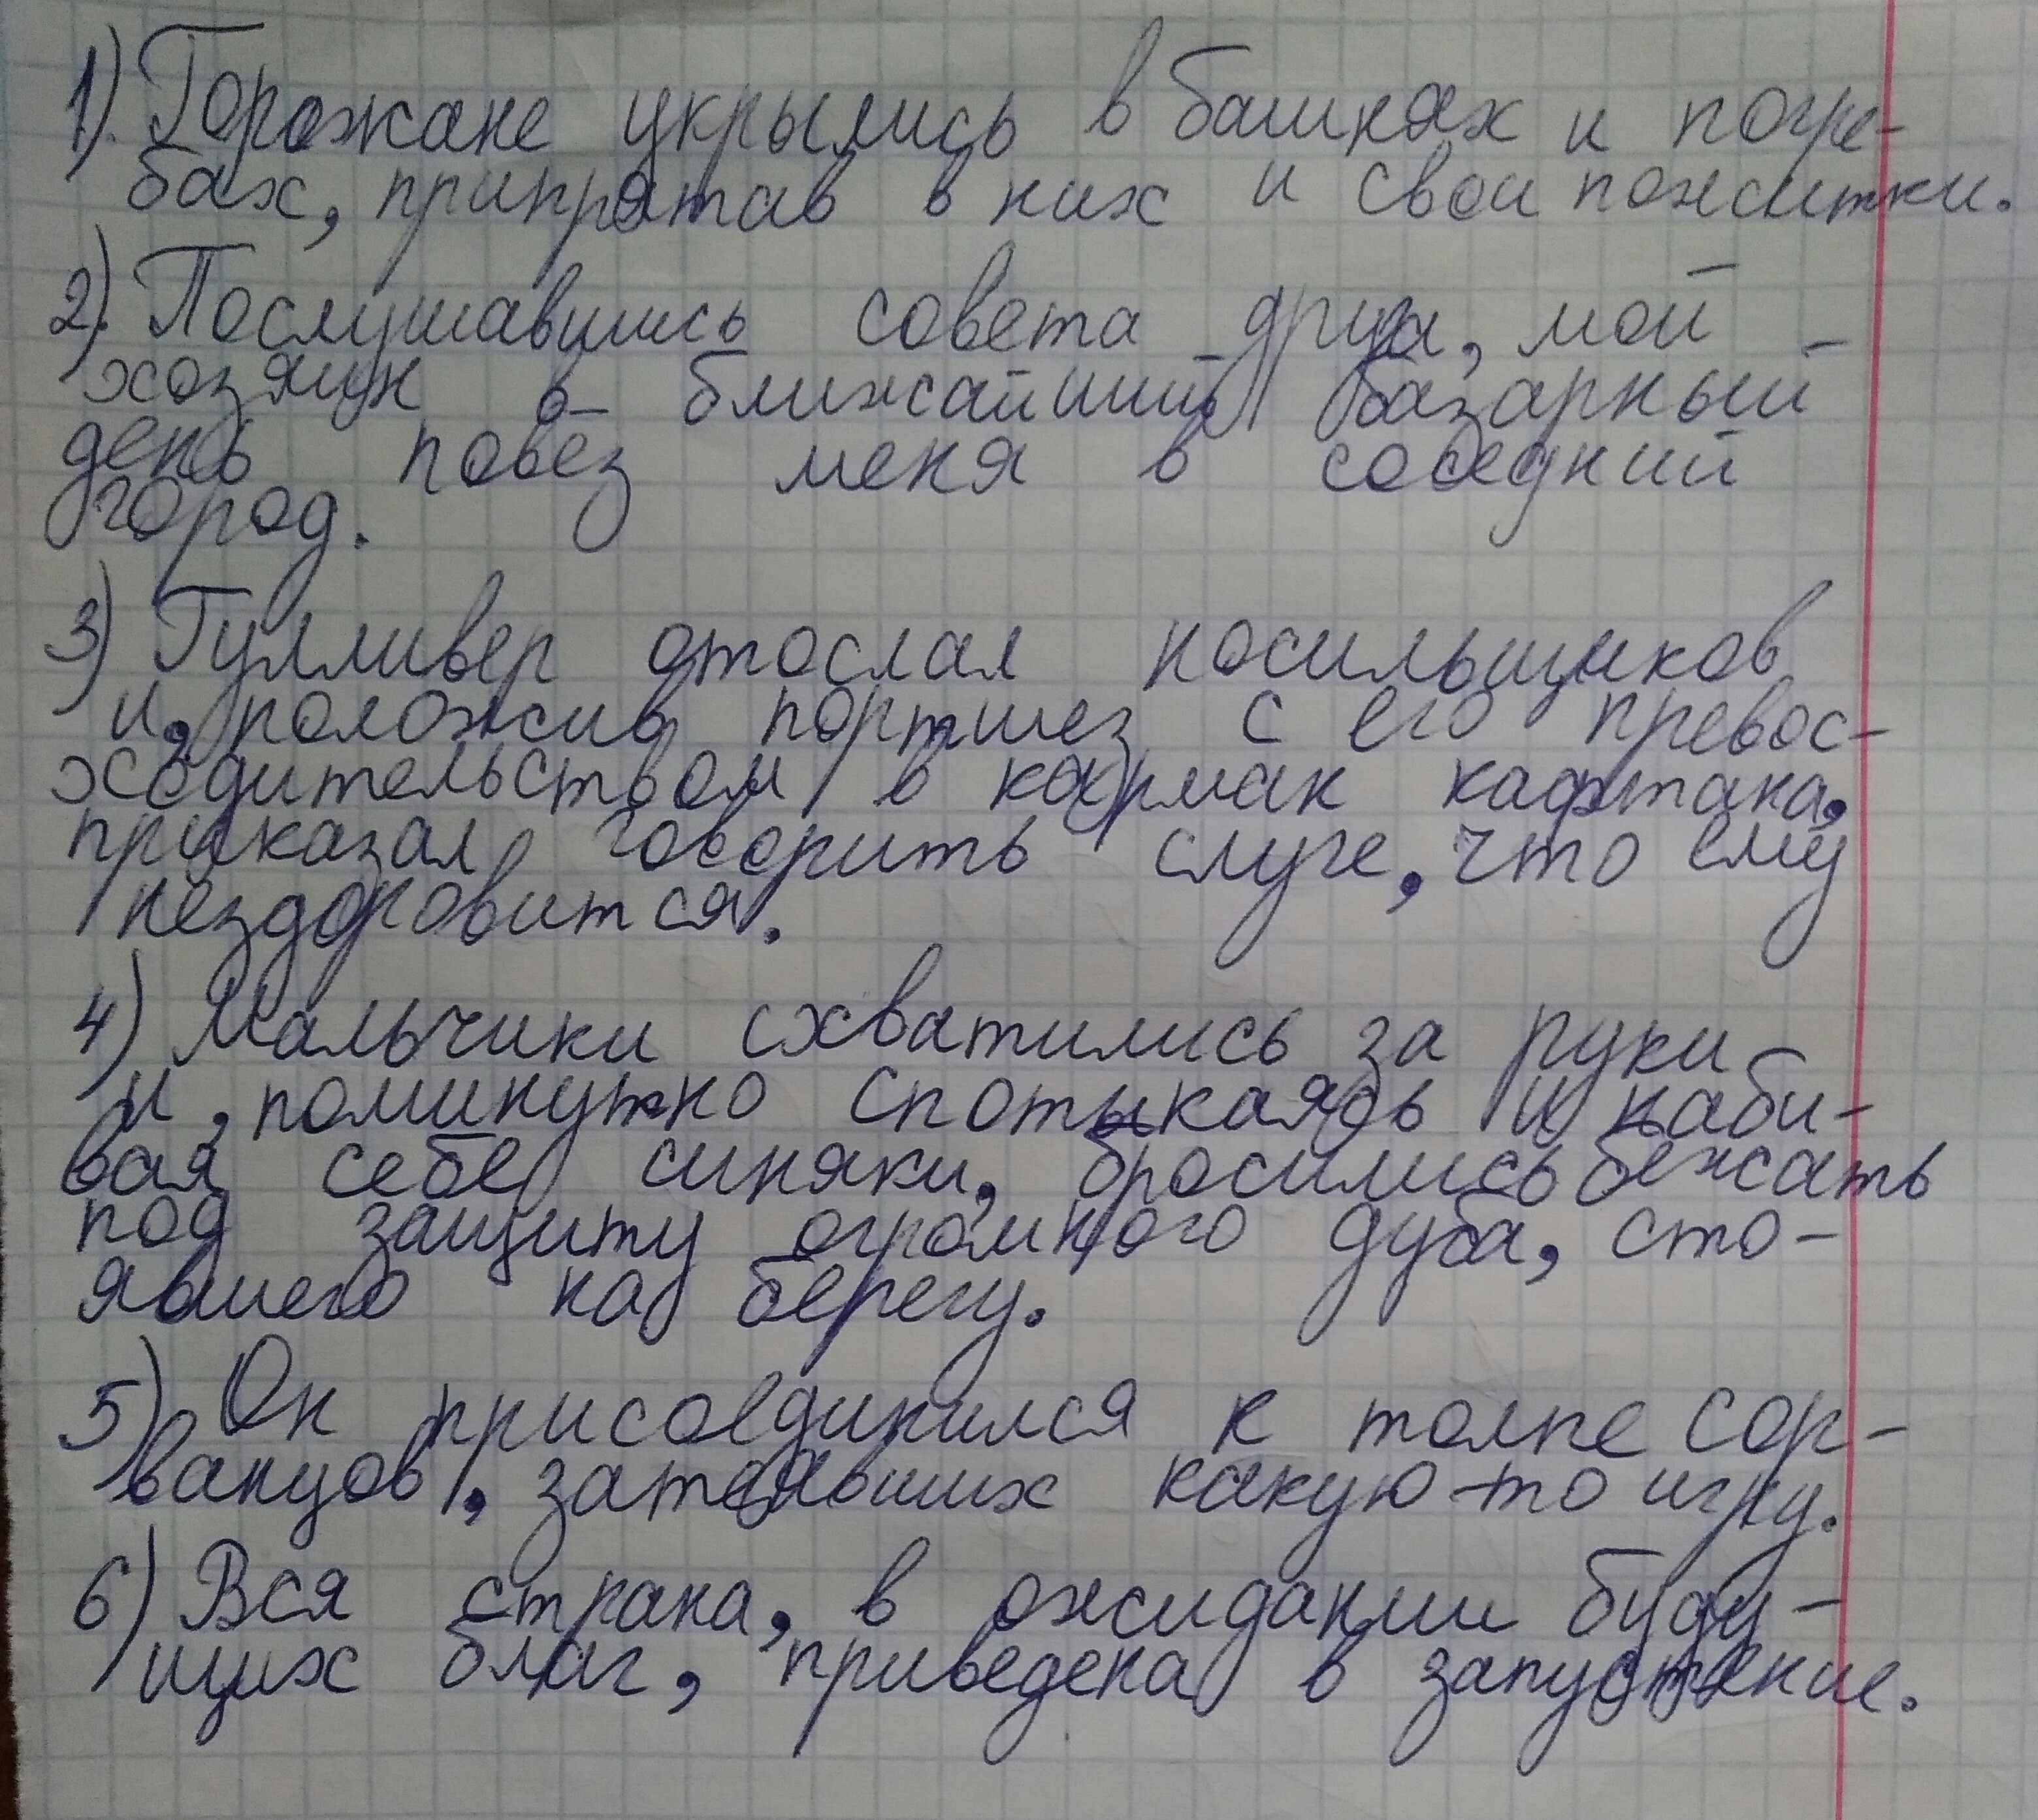 1). Горожане укрылись в башнях и погре-
бах, припрятав в них и свои пожитки.
2). Послушавшись совета друга, мой
хозяин в ближайший базарный
день повёз меня в соседний
город.
3) Гулливер отослал носильщиков
и, положив портшез с его превос-
ходительством в карман кафтана,
приказал говорить слуге, что ему
нездоровится.
4) Мальчики схватились за руки
и, поминутно спотыкаясь и наби-
вая себе синяки, бросились бежать
под защиту огромного дуба, сто-
явшего на берегу.
5) Он присоединился к толпе сор-
ванцов, затеявших какую-то игру.
6) Вся страна, в ожидании буду-
щих благ, приведена в запустение.